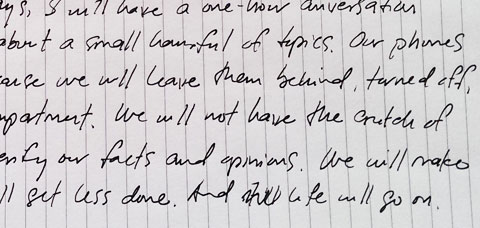 ys, I will have a one-hour conversation
about a small handful of topics. Our phones
ause we will leave them behind, turned off,
partment. We will not have the crutch of
erify our facts and opinions. We will make
ll get less done. And still life will go on.